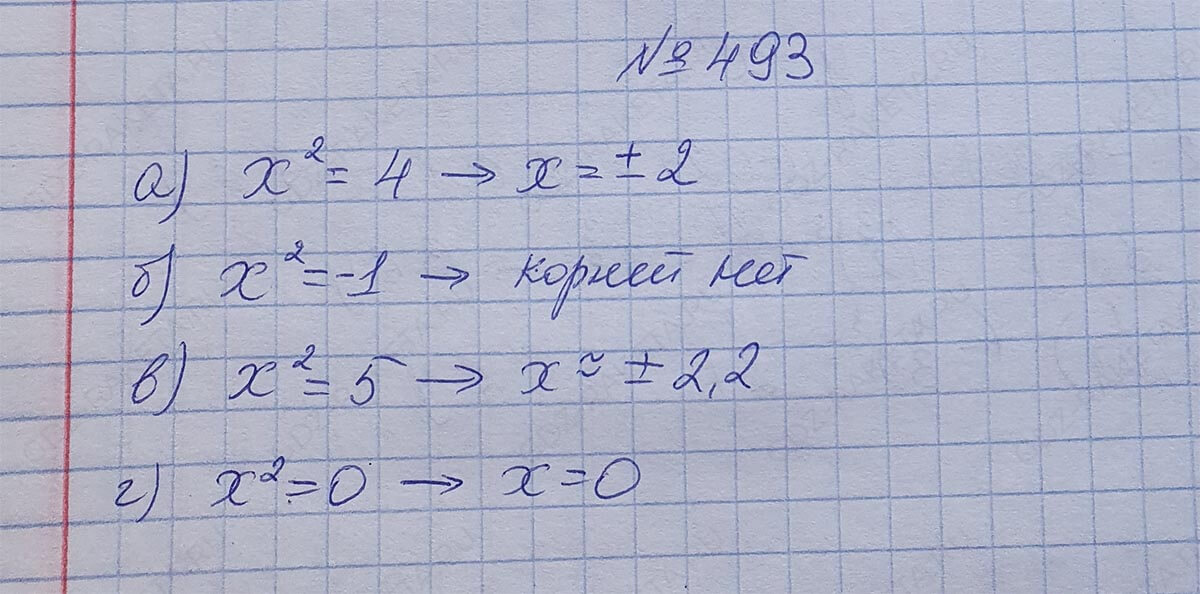 № 493
а) x² = 4 → x = ± 2
б) x² = -1 → корней нет
в) x² = 5 → x ≈ ± 2,2
г) x² = 0 → x = 0